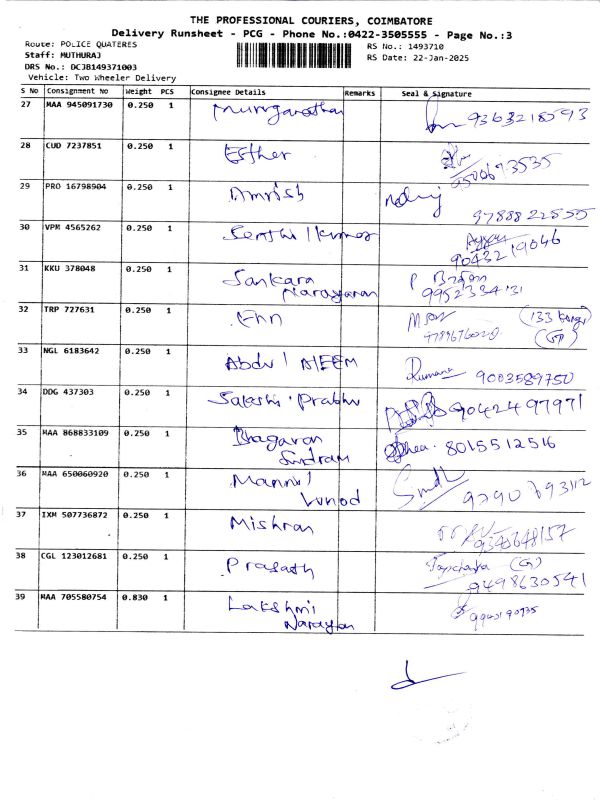 THE PROFESSIONAL COURIERS, COIMBATORE
Delivery Runsheet - PCG - Phone No.:0422-3505555 - Page No.:3
Route: POLICE QUATERES RS No.: 1493710
Staff: MUTHURAJ RS Date: 22-Jan-2025
DRS No.: DCJB149371003
Vehicle: Two Wheeler Delivery
S No Consignment No Weight PCS Consignee Details Remarks Seal & Signature
27 MAA 945091730 0.250 1 9363218593
28 CUD 7237851 0.250 1 Esther
9500673535
29 PRO 16798904 0.250 1 Amrish
9788822555
30 VPM 4565262 0.250 1 Senthil kumar
9043219046
31 KKU 378048 0.250 1 Sankara
Narayanan 9952334131
32 TRP 727631 0.250 1
33 NGL 6183642 0.250 1 Abdul AlEEM 9003589750
34 DDG 437303 0.250 1 Prabhu 9042497971
35 MAA 868833109 0.250 1 Bhagavan 8015512516
Sundram
36 MAA 650060920 0.250 1
Vinod
37 IXM 507736872 0.250 1
38 CGL 123012681 0.250 1 Prasath
9498630541
39 MAA 705580754 0.830 1 Lakshmi
Narayan